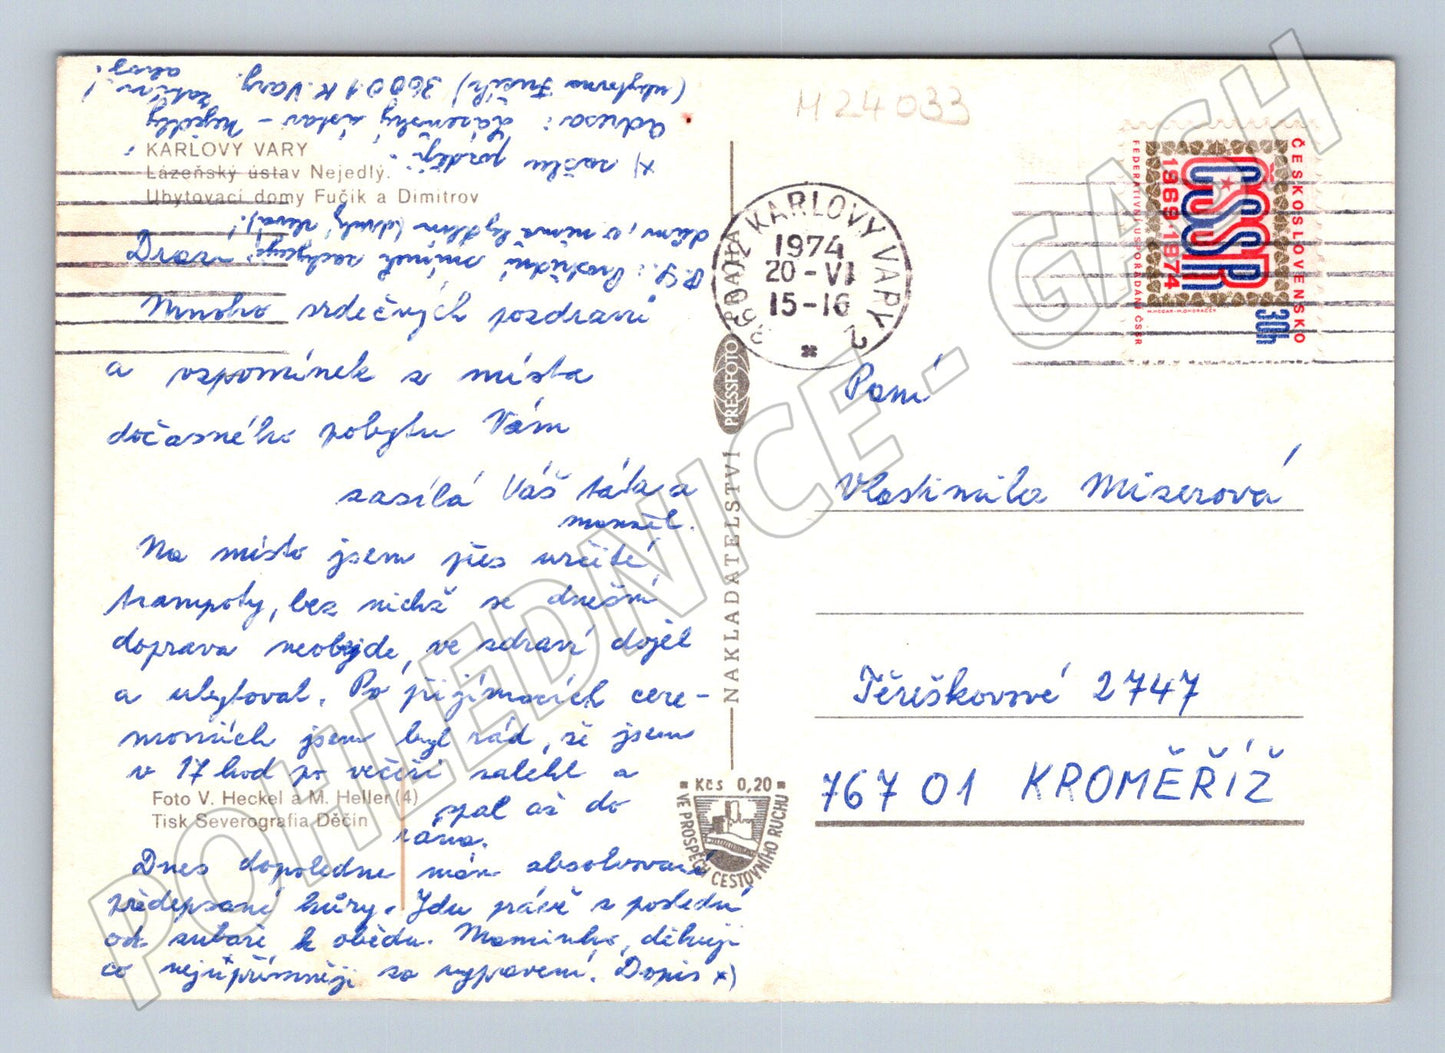 M 24 033
KARLOVY VARY
Lázeňský ústav Nejedlý.
Ubytovací domy Fučík a Dimitrov
Drazí
Mnoho srdečných pozdravů
a vzpomínek z místa
dočasného pobytu Vám
zasílá Váš táta a
manžel.
Na místo jsem přes určité
trampoty, bez nichž se dnešní
doprava neobejde, ve zdraví dojel
a ubytoval. Po přijímacích cere-
moniích jsem byl rád, že jsem
v 17 hod po večeři zalehl a
spal až do
rána.
Dnes dopoledne mám absolvované
předepsané kůry. Jdu právě z poslední
od zubaře k obědu. Maminko, děkuji
co nejupřímněji za vypravení. Dopis x)
x) zašlu později.
Adresa: Lázeňský ústav - Nejedlý
(ubytovna Fučík) 36001 K. Vary. Zatím
ahoj!
P.S.: Prostřední snímek zachycuje
dům, v němž bydlím (druhý zleva)!
Foto V. Heckel a M. Heller (4)
Tisk Severografia Děčín
PRESSFOTO
NAKLADATELSTVÍ
Kčs 0,20
VE PROSPĚCH CESTOVNÍHO RUCHU
360 02 KARLOVY VARY 2
1974
20-VI
15-16
ČESKOSLOVENSKO
ČSSR
1969-1974
FEDERATIVNÍ USPOŘÁDÁNÍ ČSSR
30h
Paní
Vlastimila Miserová
Těreškovové 2747
767 01 KROMĚŘÍŽ
POHLEDNICE - GASH